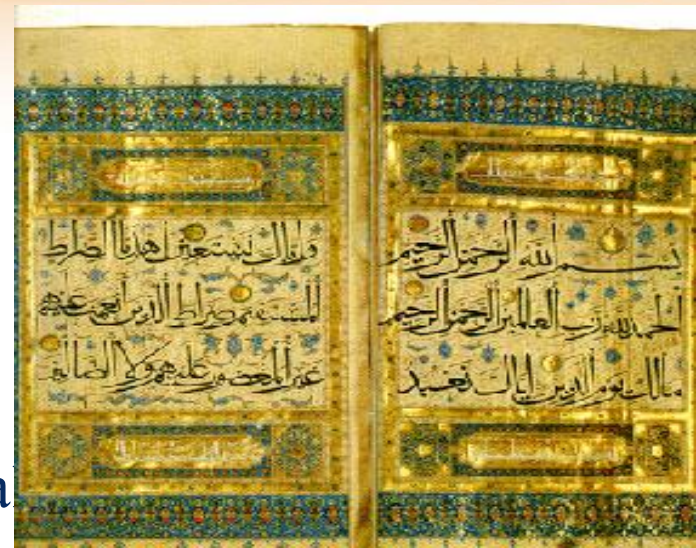 بسم الله الرحمن الرحيم
الحمد لله رب العالمين الرحمن الرحيم
مالك يوم الدين اياك نعبد
واياك نستعين اهدنا الصراط
المستقيم صراط الذين أنعمت عليهم
غير المغضوب عليهم ولا الضالين